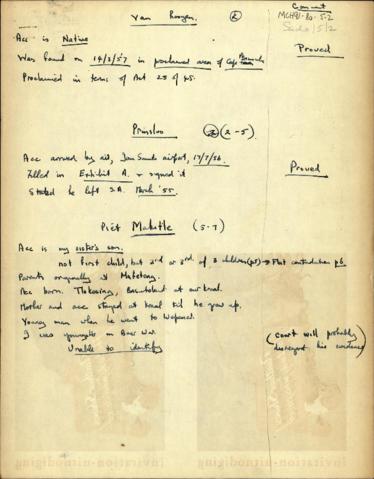 Van Rooyen. (2)
Comment
Acc is Native
Proved
Was found on 14/8/57 in proclaimed area of Cape
Proclaimed in terms of Act 25 of 45.
Prinsloo (2-5)
Acc arrived by air, Jan Smuts airport, 17/7/56.
Proved
Filled in Exhibit A. & signed it
Stated he left S.A. March '55.
Piet Makotle (5-7)
Acc is my sister's son.
not first child, but 2nd or 3rd of 3 children (p5) → Flat contradiction p6
Parents originally at Mafeteng.
Acc born. Basutoland at our kraal.
Mother and acc stayed at kraal till he grew up.
Young man when he went to Wepener.
I was youngster in Boer War.
Unable to identify
(court will probably
disregard his evidence)
Invitation-uitnodiging
Invitation-uitnodiging